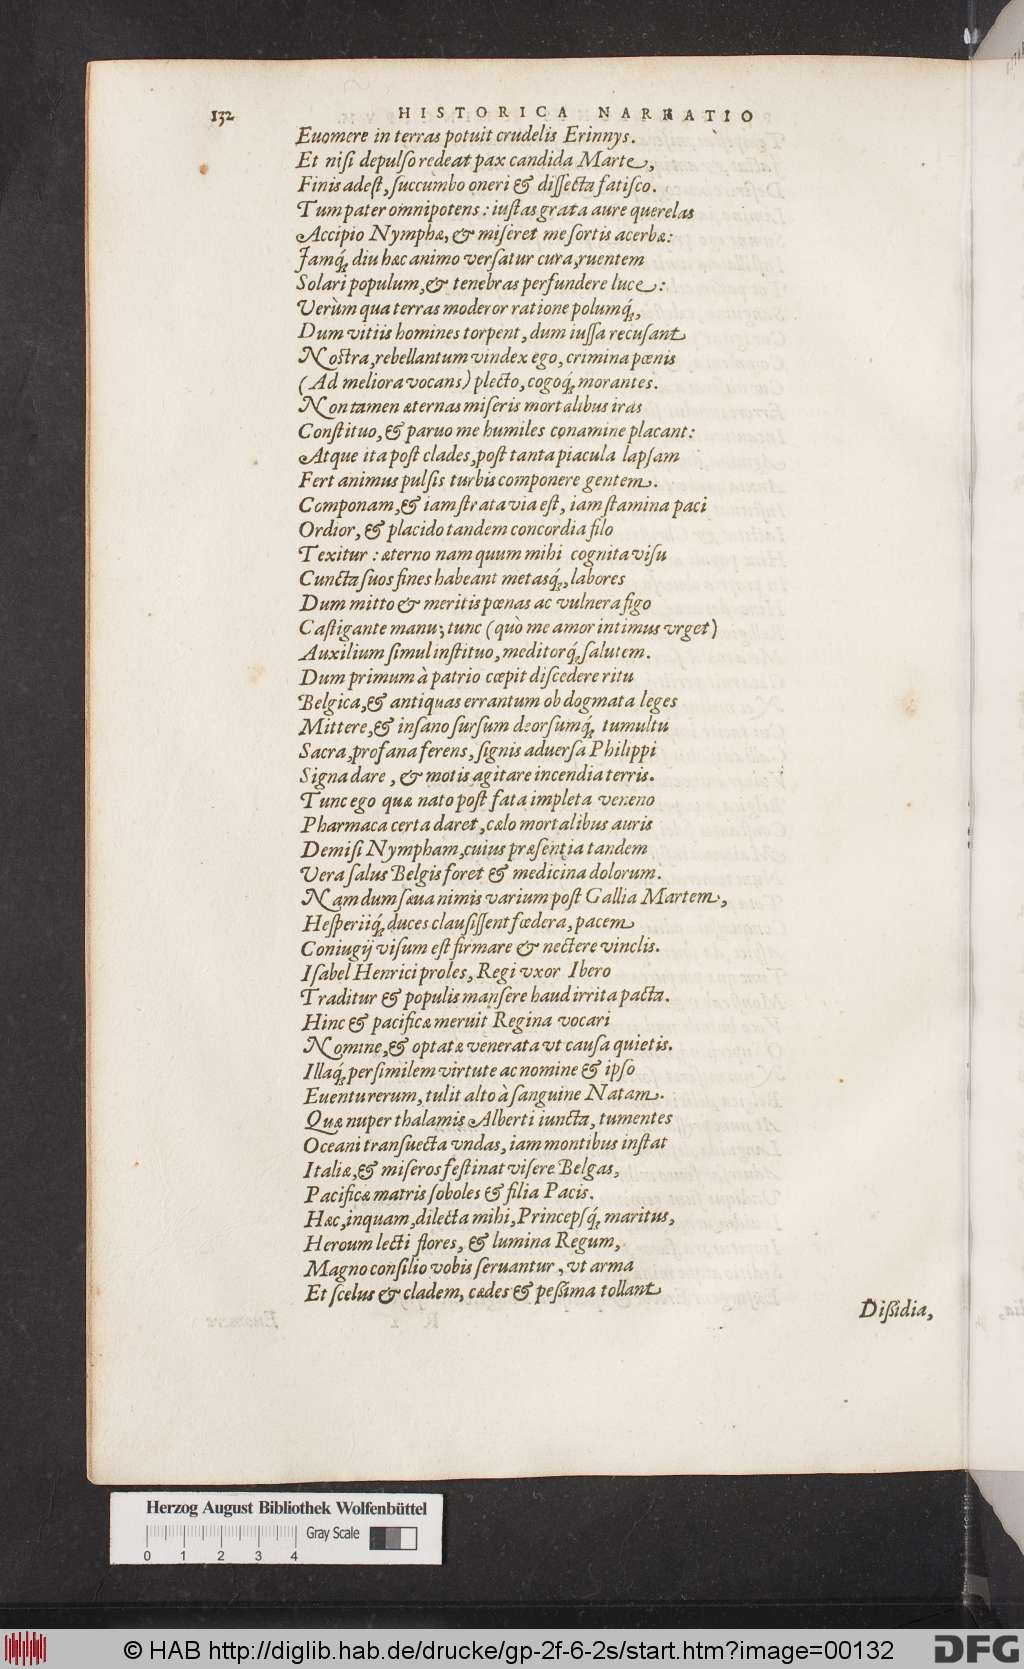 132 HISTORICA NARRATIO
Euomere in terras potuit crudelis Erinnys.
Et nisi depulso redeat pax candida Marte,
Finis adest, succumbo oneri & dissecta fatisco.
Tum pater omnipotens: iustas grata aure querelas
Accipio Nymphæ, & miseret me sortis acerbæ:
Jamq́; diu hæc animo versatur cura, ruentem
Solari populum, & tenebras perfundere luce:
Verùm qua terras moderor ratione polumq́;,
Dum vitiis homines torpent, dum iussa recusant
Nostra, rebellantum vindex ego, crimina pœnis
(Ad meliora vocans) plecto, cogoq́; morantes.
Non tamen æternas miseris mortalibus iras
Constituo, & paruo me humiles conamine placant:
Atque ita post clades, post tanta piacula lapsam
Fert animus pulsis turbis componere gentem.
Componam, & iam strata via est, iam stamina paci
Ordior, & placido tandem concordia filo
Texitur: æterno nam quum mihi cognita visu
Cuncta suos fines habeant metasq́;, labores
Dum mitto & meritis pœnas ac vulnera figo
Castigante manu; tunc (quò me amor intimus vrget)
Auxilium simul instituo, meditorq́; salutem.
Dum primum à patrio cœpit discedere ritu
Belgica, & antiquas errantum ob dogmata leges
Mittere, & insano sursum deorsumq́; tumultu
Sacra, profana ferens, signis aduersa Philippi
Signa dare, & motis agitare incendia terris.
Tunc ego quæ nato post fata impleta veneno
Pharmaca certa daret, cælo mortalibus auris
Demisi Nympham, cuius præsentia tandem
Vera salus Belgis foret & medicina dolorum.
Nam dum sæua nimis varium post Gallia Martem,
Hesperiiq́; duces clausissent fœdera, pacem
Coniugij visum est firmare & nectere vinclis.
Isabel Henrici proles, Regi vxor Ibero
Traditur & populis mansere haud irrita pacta.
Hinc & pacificæ meruit Regina vocari
Nomine, & optatæ venerata vt causa quietis.
Illaq́; persimilem virtute ac nomine & ipso
Euentu rerum, tulit alto à sanguine Natam.
Quæ nuper thalamis Alberti iuncta, tumentes
Oceani transuecta vndas, iam montibus instat
Italiæ, & miseros festinat visere Belgas,
Pacificæ matris soboles & filia Pacis.
Hæc, inquam, dilecta mihi, Princepsq́; maritus,
Heroum lecti flores, & lumina Regum,
Magno consilio vobis seruantur, vt arma
Et scelus & cladem, cædes & pessima tollant
Dissidia,
Herzog August Bibliothek Wolfenbüttel
Gray Scale
0 1 2 3 4
© HAB http://diglib.hab.de/drucke/gp-2f-6-2s/start.htm?image=00132
DFG